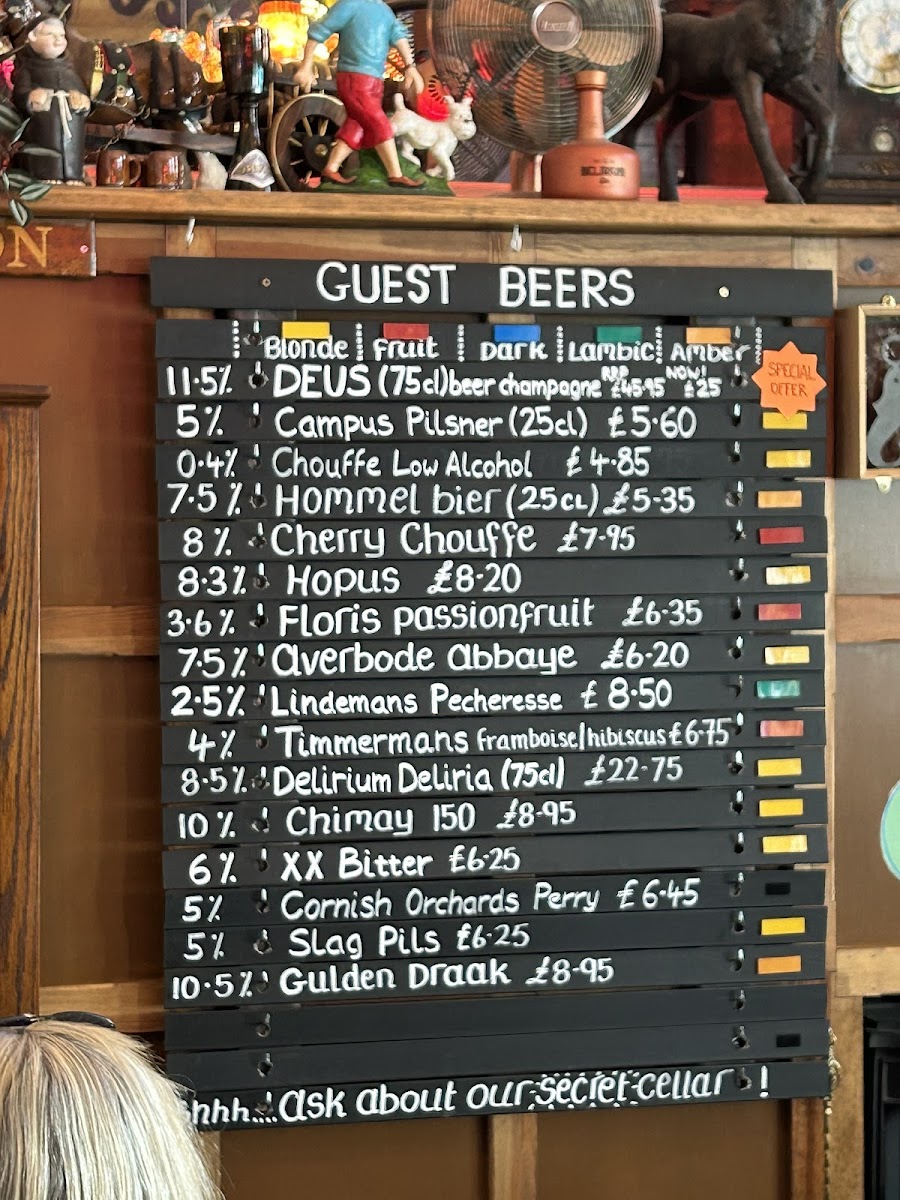 ON
GUEST BEERS
Blonde Fruit Dark Lambic Amber
11.5% DEUS (75cl) beer champagne RRP £45.95 NOW! £25
SPECIAL OFFER
5% Campus Pilsner (25cl) £5.60
0.4% Chouffe Low Alcohol £4.85
7.5% Hommel bier (25cl) £5.35
8% Cherry Chouffe £7.95
8.3% Hopus £8.20
3.6% Floris passionfruit £6.35
7.5% averbode abbaye £6.20
2.5% Lindemans Pecheresse £8.50
4% Timmermans framboise/hibiscus £6.75
8.5% Delirium Deliria (75cl) £22.75
10% Chimay 150 £8.95
6% XX Bitter £6.25
5% Cornish Orchards Perry £6.45
5% Slag Pils £6.25
10.5% Gulden Draak £8.95
hhh... ask about our secret cellar !